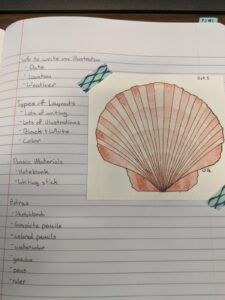 Info to write on Illustration
- Date
- Location
- Weather
Types of Layouts
- Lots of writing
- Lots of illustrations
- Black & White
- Color
Basic Materials
- Notebook
- Writing stick
Extras
- Sketchbook
- Graphite pencils
- colored pencils
- watercolor
- gouache
- pens
- ruler